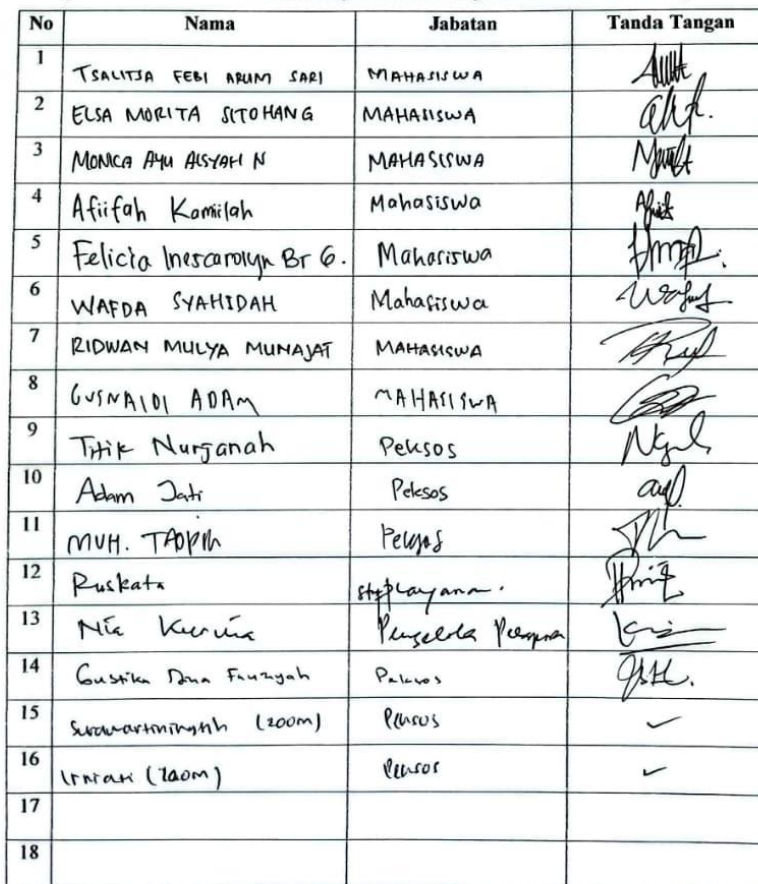 No Nama Jabatan Tanda Tangan
1 TSALITSA FEBI ARUM SARI MAHASISWA
2 ELSA MORITA SITOHANG MAHASISWA
3 MONICA AYU AISYAH N MAHASISWA
4 Afiifah Kamilah Mahasiswa
5 Felicia Inescarolyn Br G. Mahasiswa
6 WAFDA SYAHIDAH Mahasiswa
7 RIDWAN MULYA MUNAJAT MAHASISWA
8 GUSNAIDI ADAM MAHASISWA
9 Titik Nurjanah Peksos
10 Adam Jati Peksos
11 MUH. TAOPIK Peksos
12 Ruskata
13 Nia Kurnia Pengelola
14 Gustika Fauziyah Peksos
15 (zoom) Peksos ✓
16 (zoom) Peksos ✓
17
18